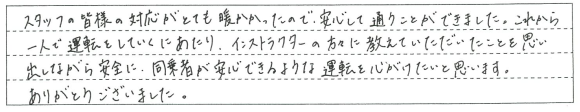 スタッフの皆様の対応がとても暖かかったので、安心して通うことができました。これから
一人で運転をしていくにあたり、インストラクターの方々に教えていただいたことを思い
出しながら安全に、同乗者が安心できるような運転を心がけたいと思います。
ありがとうございました。